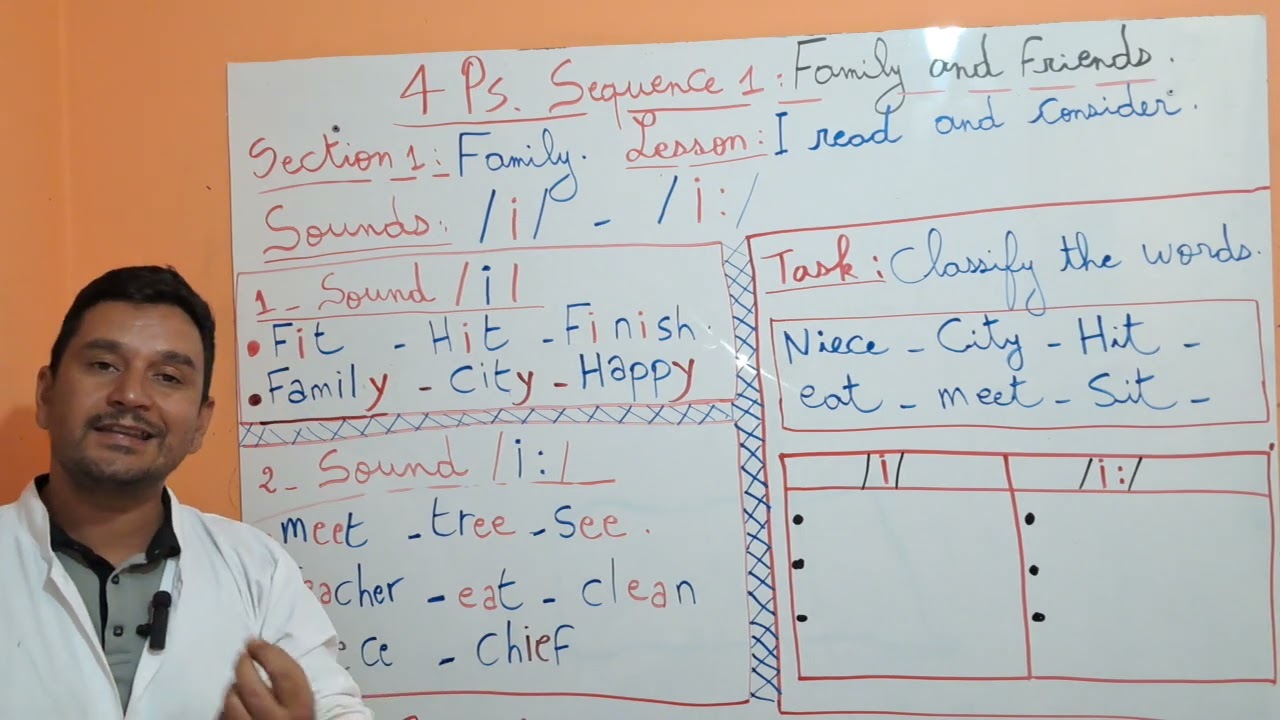 4 Ps. Sequence 1: Family and Friends.
Section 1: Family. Lesson: I read and consider.
Sounds: /i/ - /i:/
1- Sound /i/
• Fit - Hit - Finish.
• Family - City - Happy
2- Sound /i:/
meet - tree - See.
eacher - eat - clean
ece - Chief
Task: Classify the words.
Niece - City - Hit -
eat - meet - Sit -
/i/ /i:/